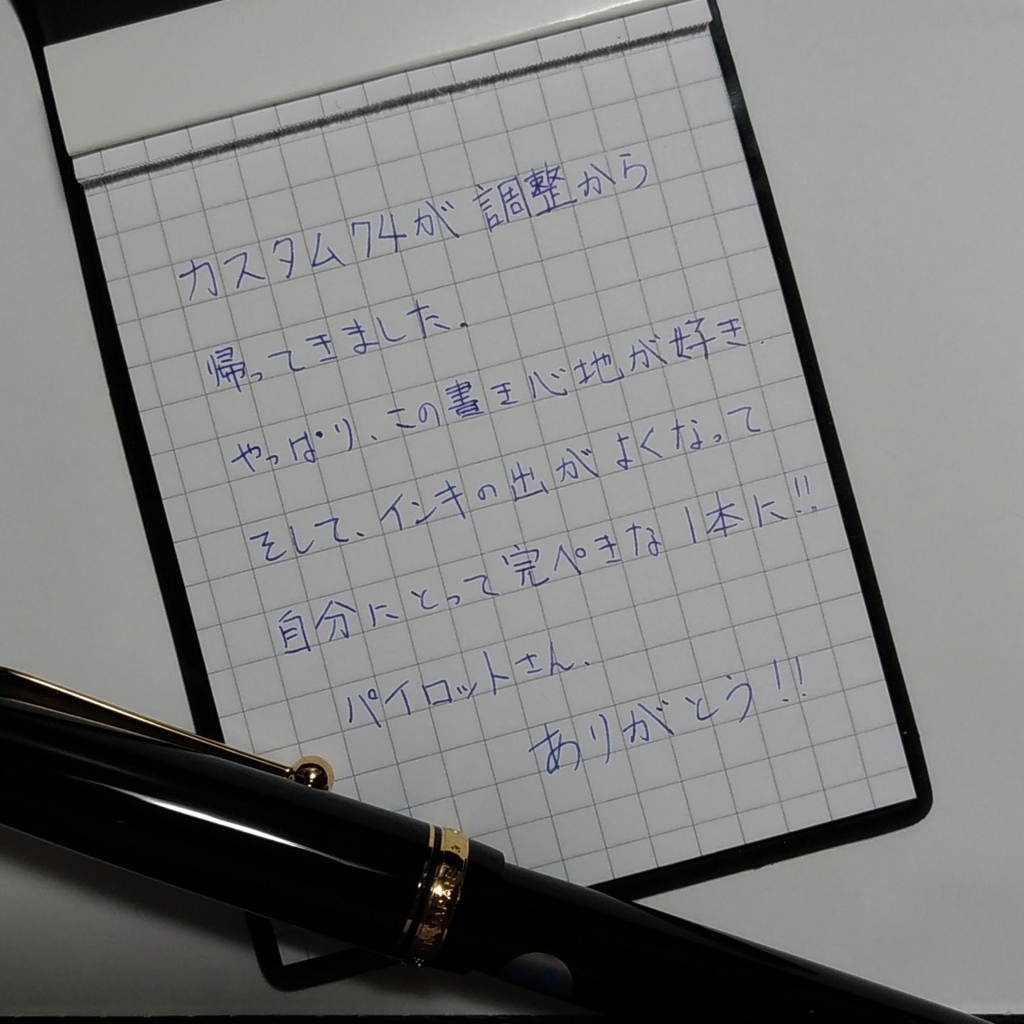 カスタム74が調整から
帰ってきました.
やっぱり、この書き心地が好き.
そして、インキの出がよくなって
自分にとって完ぺきな1本に!!
パイロットさん.
ありがとう!!